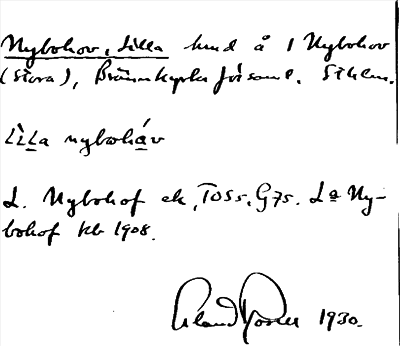 Nybohov, Lilla hmd å 1 Nybohov
(Stora), Brännkyrka förs. Sthlm.
Lìlla nybωhá̱v
L. Nybohof ek, TOSs, G7s. La Ny-
bohof kb 1908.
Roland 1930.